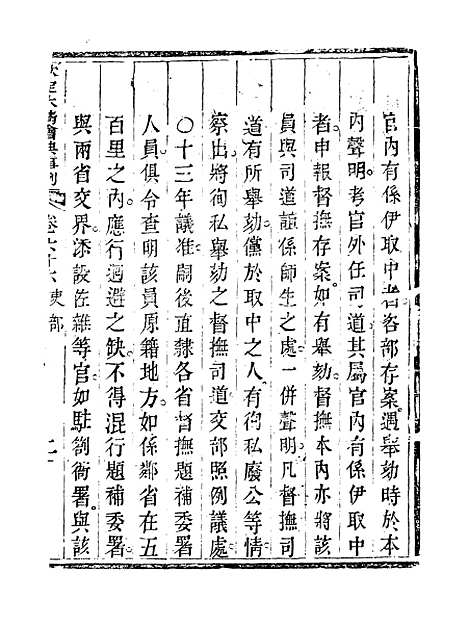 官內有係伊取中者咨部存案遇舉劾時於本
內聲明考官外任司道其屬官內有係伊取中
者申報督撫存案如有舉劾督撫本內亦將該
員與司道誼係師生之處一併聲明凡督撫司
道有所舉劾儻於取中之人有徇私廢公等情
察出將徇私舉劾之督撫司道交部照例議處
○十三年議准嗣後直隸各省督撫題補委署
人員俱令查明該員原籍地方如係鄰省在五
百里之內應行迴避之缺不得混行題補委署
與兩省交界添設佐雜等官如駐劄衙署與該
欽定大清會典事例 卷六十六 吏部